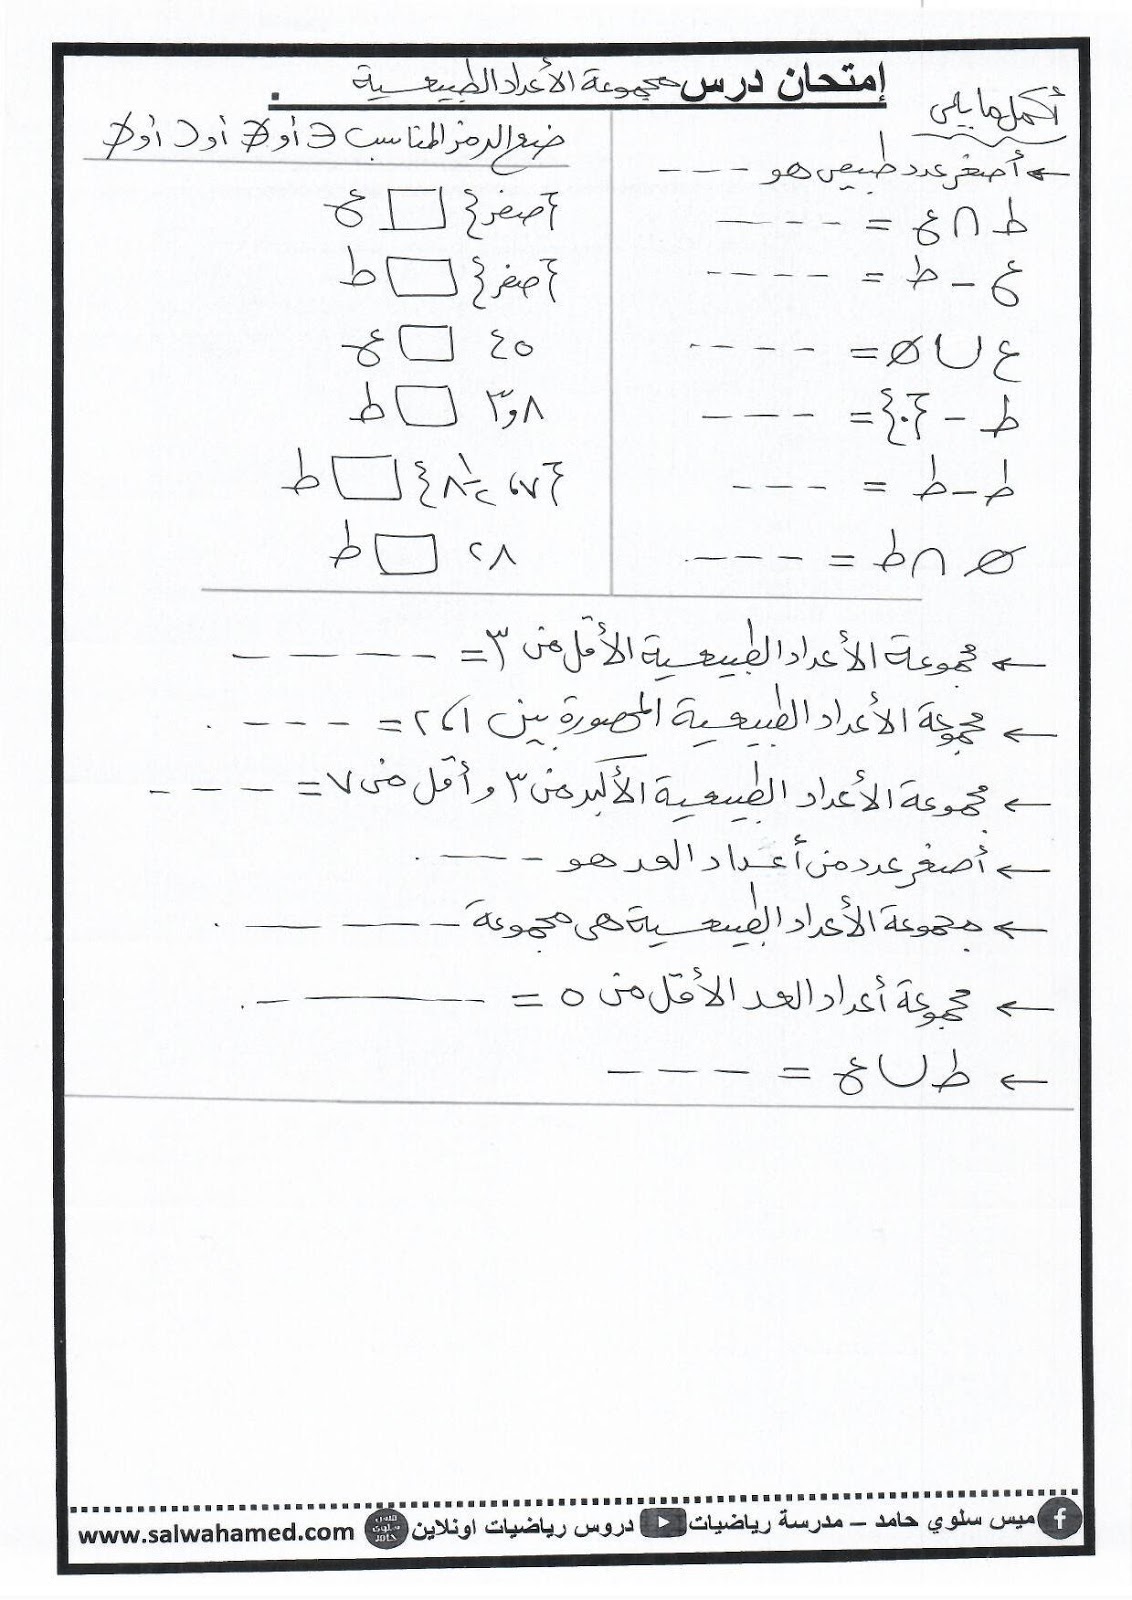 إمتحان درس مجموعة الأعداد الطبيعية .
أكمل ما يلى
← أصغر عدد طبيعى هو - - -
ط ∩ ع = - - - -
ع - ط = - - - -
ع ∪ ∅ = - - - -
ط - {٠} = - - -
ط - ط = - - -
∅ ∩ ط = - - - -
ضع الرمز المناسب ∈ أو ∉ أو ⊂ أو ⊄
{صفر} □ ع
{صفر} □ ط
٤٥ □ ع
٣٫٨ □ ط
{٧، ٨ ١/٢} □ ط
٢٨ □ ط
← مجموعة الأعداد الطبيعية الأقل من ٣ = - - - -
← مجموعة الأعداد الطبيعية المحصورة بين ١، ٢ = - - - .
← مجموعة الأعداد الطبيعية الأكبر من ٣ وأقل من ٧ = - - - -
← أصغر عدد من أعداد العد هو - - - .
← مجموعة الأعداد الطبيعية هى مجموعة - - - - .
← مجموعة أعداد العد الأقل من ٥ = - - - .
← ط ∪ ع = - - - -
ميس سلوي حامد – مدرسة رياضيات دروس رياضيات اونلاين www.salwahamed.com